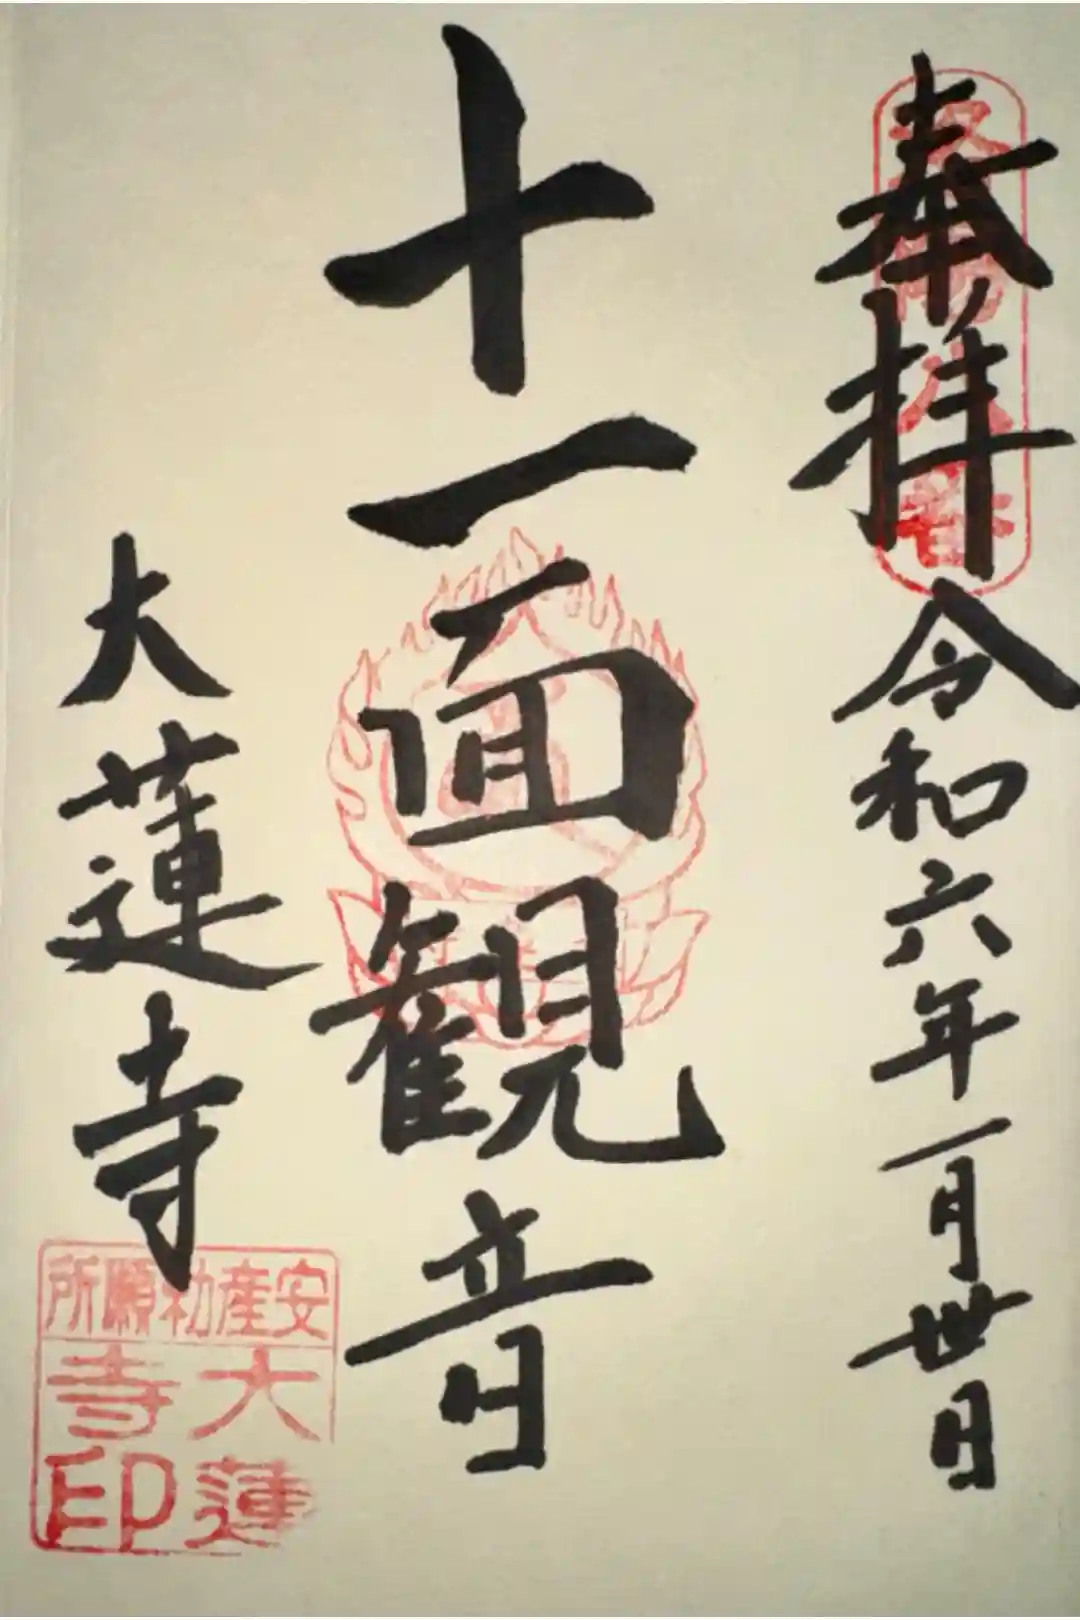 奉拝 令和六年一月丗日
洛陽八番
十一面観音
大蓮寺
安産勅願所
大蓮
寺印